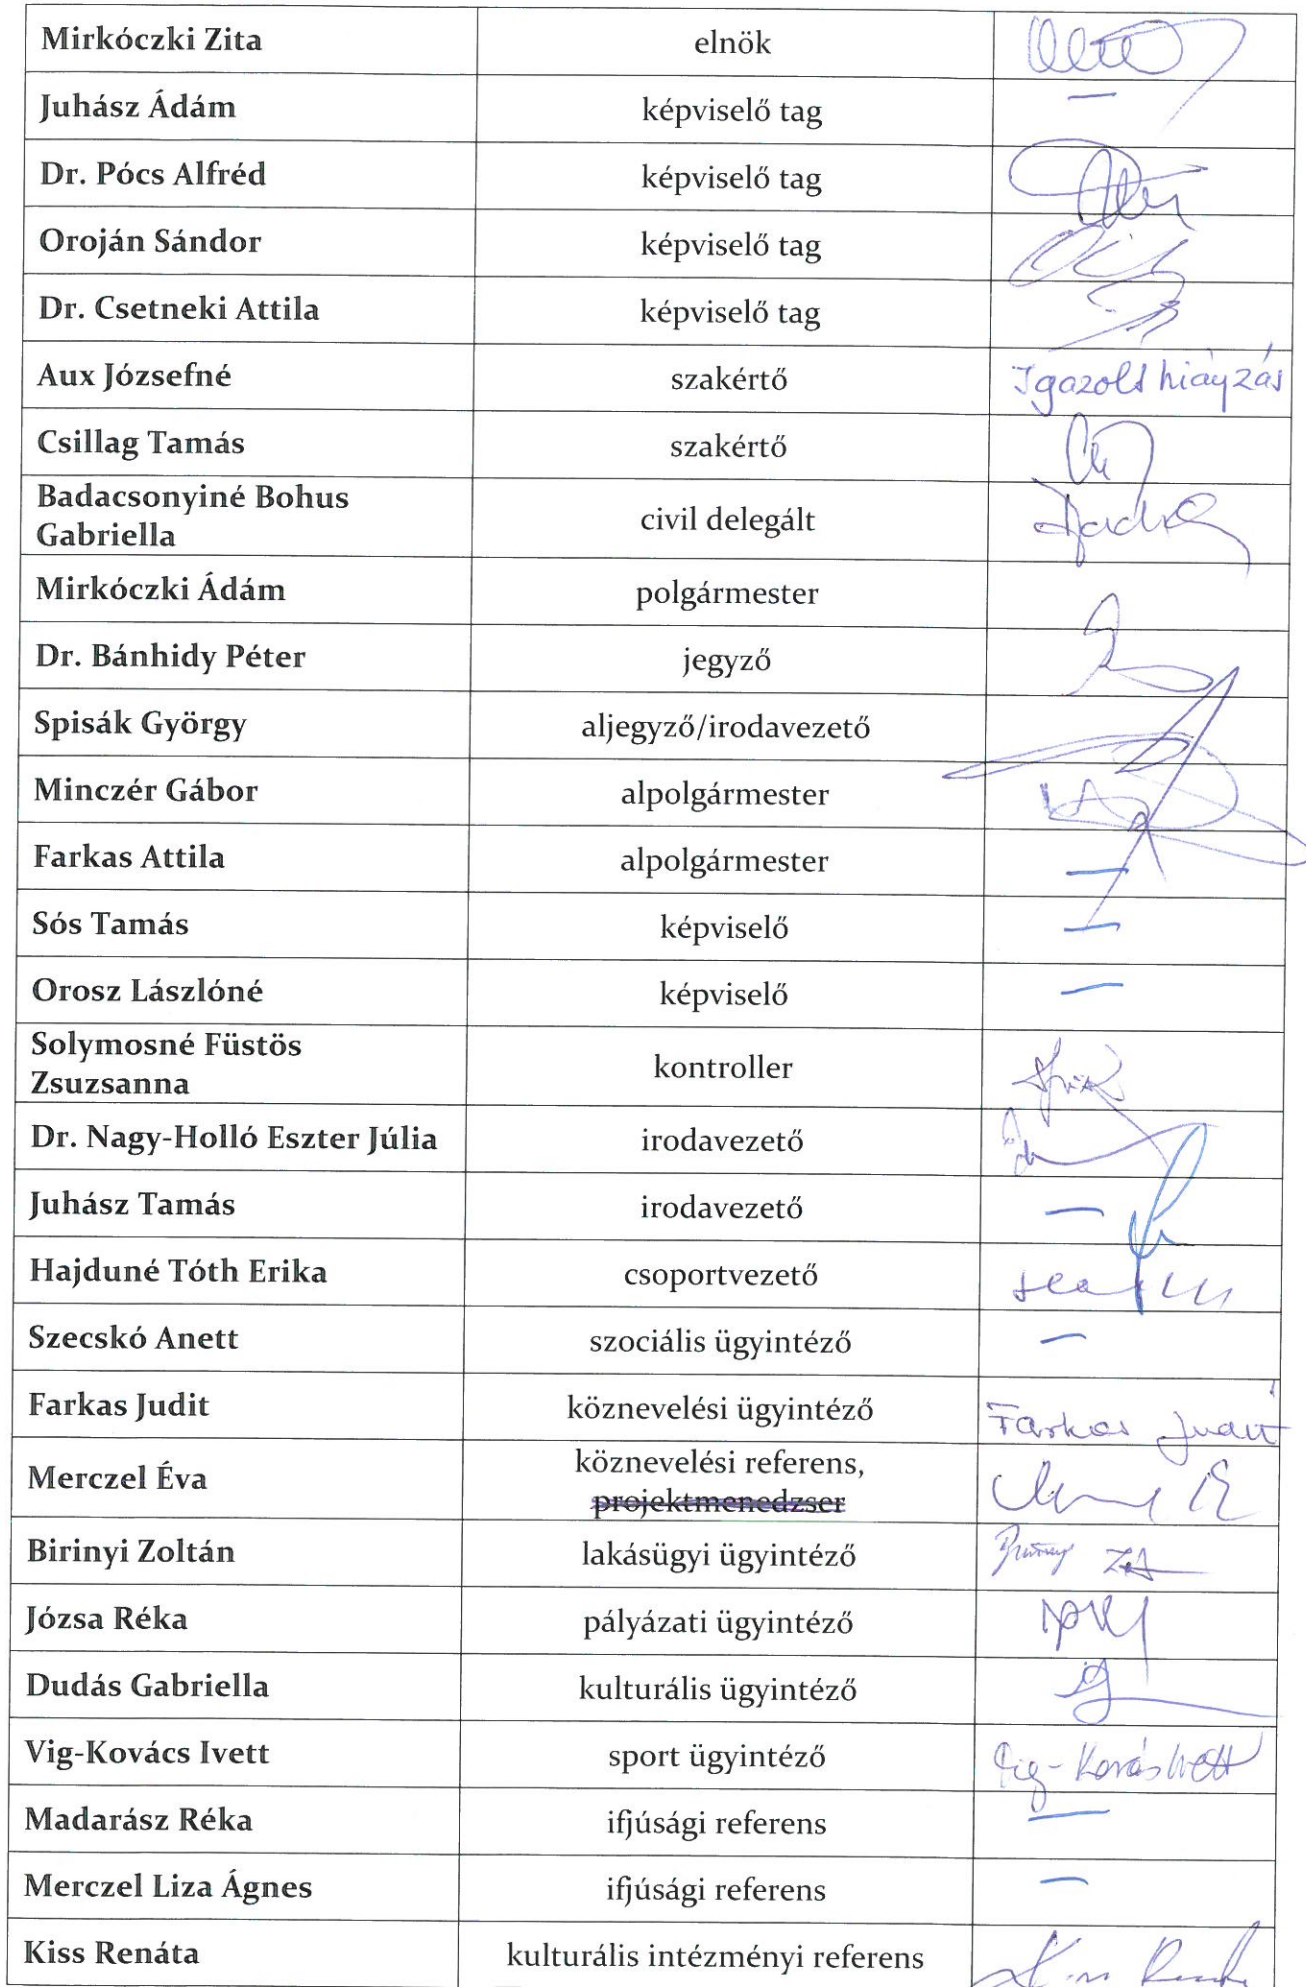 Mirkóczki Zita elnök
Juhász Ádám képviselő tag —
Dr. Pócs Alfréd képviselő tag
Oroján Sándor képviselő tag
Dr. Csetneki Attila képviselő tag
Aux Józsefné szakértő Igazolt hiányzás
Csillag Tamás szakértő
Badacsonyiné Bohus
Gabriella civil delegált
Mirkóczki Ádám polgármester
Dr. Bánhidy Péter jegyző
Spisák György aljegyző/irodavezető
Minczér Gábor alpolgármester
Farkas Attila alpolgármester —
Sós Tamás képviselő —
Orosz Lászlóné képviselő —
Solymosné Füstös
Zsuzsanna kontroller
Dr. Nagy-Holló Eszter Júlia irodavezető
Juhász Tamás irodavezető —
Hajduné Tóth Erika csoportvezető
Szecskó Anett szociális ügyintéző —
Farkas Judit köznevelési ügyintéző Farkas Judit
Merczel Éva köznevelési referens,
projektmenedzser
Birinyi Zoltán lakásügyi ügyintéző
Józsa Réka pályázati ügyintéző
Dudás Gabriella kulturális ügyintéző
Vig-Kovács Ivett sport ügyintéző Vig-Kovács Ivett
Madarász Réka ifjúsági referens —
Merczel Liza Ágnes ifjúsági referens —
Kiss Renáta kulturális intézményi referens